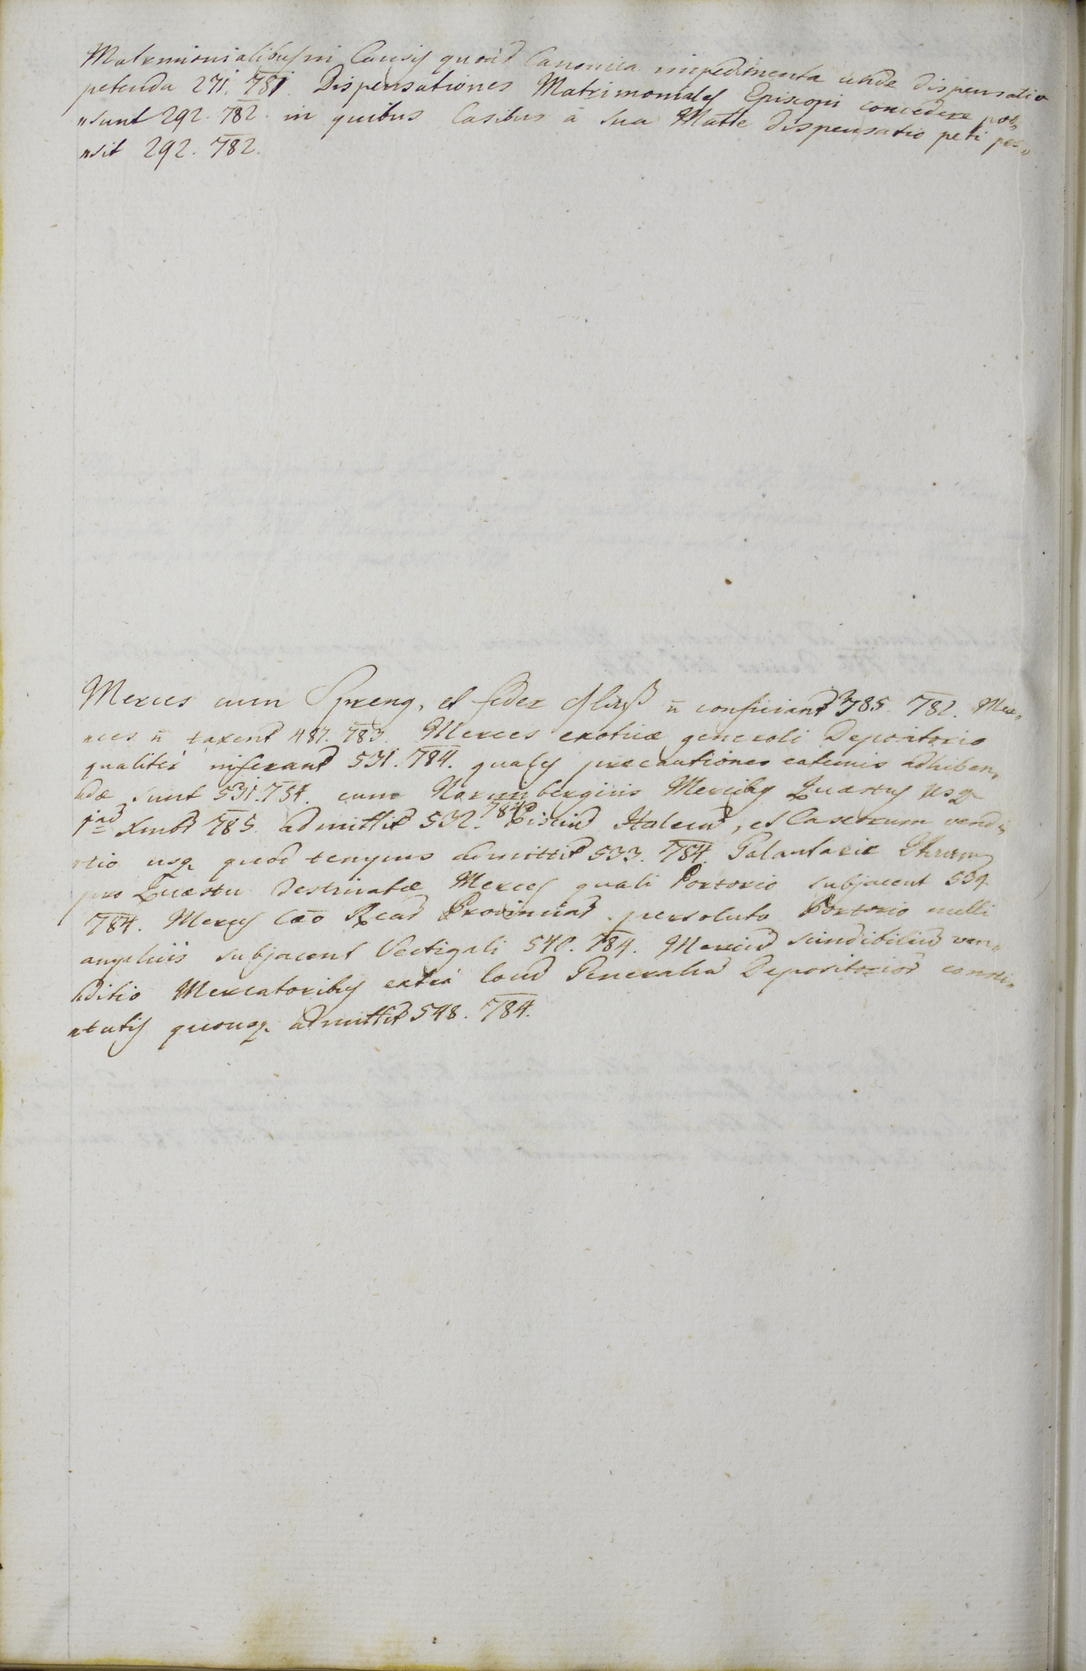 Matrimonialibus in Causis quoad Canonica impedimenta unde dispensatio
petenda 271. 781. Dispensationes Matrimoniales Episcopi concedere pos„
„sunt 292. 782. in quibus Casibus a Sua Matte dispensatio peti pos„
„sit 292. 782.
Merces cum Spreng, et feder Glaß n̄ conficiant 385. 782. Mer„
„ces n̄ taxent 487. 783. Merces exoticæ generali Depositorio
qualiter inferant 531. 784. quales præcautiones eatenus adhiben„
„dæ sunt 531. 784. cum Norimbergicis Mercibus Quæstus usq
1mad Xmbr 785. admittit 532. 784. Piscium Italicor, et Caseorum vendi„
„tio usq quod tempus admittit 533. 784. Galanteriæ
pro Quæstu destinatæ Merces quali Portorio subjacent 534.
784. Merces Cæo Provincias persoluto Portorio nulli
amplius subjacent Vectigali 540. 784. Mercium scindibilium ven„
„ditio Mercatoribus extra locum Generalium Depositorior consti„
„tutis quousq admittit 548. 784.